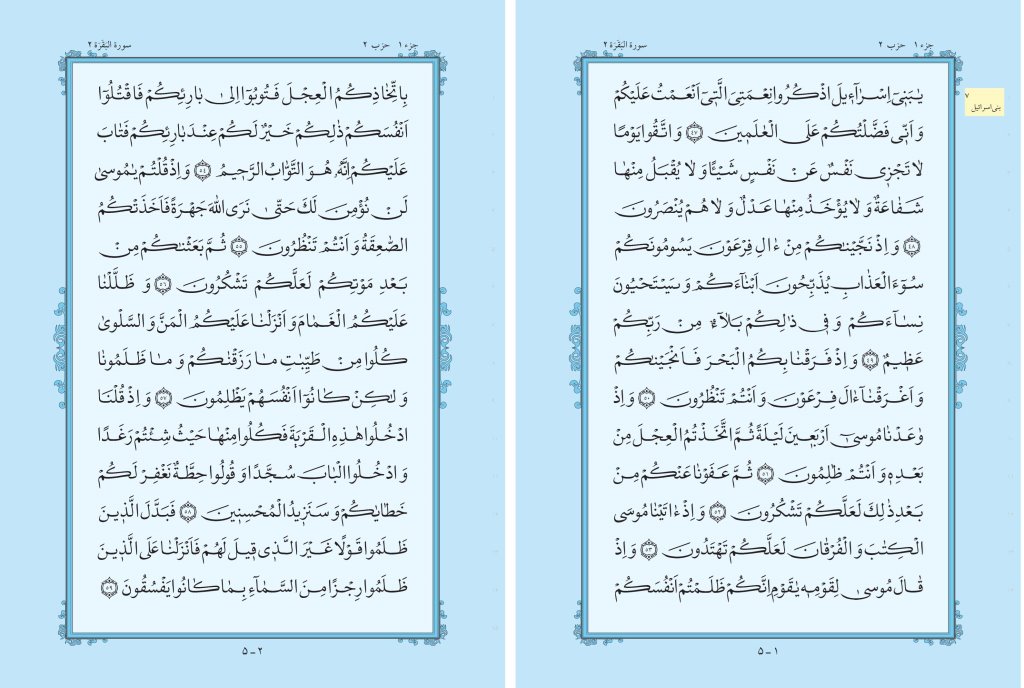 جزء ۱ حزب ۲
سورة البَقَرَة ۲
يٰبَنِىٓ اِسْرَآءِيلَ اذْكُرُوا نِعْمَتِىَ الَّتِىٓ اَنْعَمْتُ عَلَيْكُمْ
وَ اَنِّى فَضَّلْتُكُمْ عَلَى الْعٰلَمِينَ ﴿۴۷﴾ وَ اتَّقُوا يَوْمًا
لَا تَجْزِى نَفْسٌ عَنْ نَفْسٍ شَيْئًا وَ لَا يُقْبَلُ مِنْهَا
شَفَاعَةٌ وَ لَا يُؤْخَذُ مِنْهَا عَدْلٌ وَ لَا هُمْ يُنْصَرُونَ
﴿۴۸﴾ وَ اِذْ نَجَّيْنٰكُمْ مِنْ ءَالِ فِرْعَوْنَ يَسُومُونَكُمْ
سُوٓءَ الْعَذَابِ يُذَبِّحُونَ اَبْنَآءَكُمْ وَ يَسْتَحْيُونَ
نِسَآءَكُمْ وَ فِى ذٰلِكُمْ بَلَآءٌ مِنْ رَبِّكُمْ
عَظِيمٌ ﴿۴۹﴾ وَ اِذْ فَرَقْنَا بِكُمُ الْبَحْرَ فَاَنْجَيْنٰكُمْ
وَ اَغْرَقْنَآ ءَالَ فِرْعَوْنَ وَ اَنْتُمْ تَنْظُرُونَ ﴿۵۰﴾ وَ اِذْ
وٰعَدْنَا مُوسىٰٓ اَرْبَعِينَ لَيْلَةً ثُمَّ اتَّخَذْتُمُ الْعِجْلَ مِنْ
بَعْدِهِ وَ اَنْتُمْ ظٰلِمُونَ ﴿۵۱﴾ ثُمَّ عَفَوْنَا عَنْكُمْ مِنْ
بَعْدِ ذٰلِكَ لَعَلَّكُمْ تَشْكُرُونَ ﴿۵۲﴾ وَ اِذْ ءَاتَيْنَا مُوسَى
الْكِتٰبَ وَ الْفُرْقَانَ لَعَلَّكُمْ تَهْتَدُونَ ﴿۵۳﴾ وَ اِذْ
قَالَ مُوسىٰ لِقَوْمِهِ يٰقَوْمِ اِنَّكُمْ ظَلَمْتُمْ اَنْفُسَكُمْ
۵ - ۱
۷
بنی‌اسرائیل
جزء ۱ حزب ۲
سورة البَقَرَة ۲
بِاتِّخَاذِكُمُ الْعِجْلَ فَتُوبُوٓا اِلىٰ بَارِئِكُمْ فَاقْتُلُوٓا
اَنْفُسَكُمْ ذٰلِكُمْ خَيْرٌ لَكُمْ عِنْدَ بَارِئِكُمْ فَتَابَ
عَلَيْكُمْ اِنَّهُ هُوَ التَّوَّابُ الرَّحِيمُ ﴿۵۴﴾ وَ اِذْ قُلْتُمْ يٰمُوسىٰ
لَنْ نُؤْمِنَ لَكَ حَتّىٰ نَرَى اللّٰهَ جَهْرَةً فَاَخَذَتْكُمُ
الصّٰعِقَةُ وَ اَنْتُمْ تَنْظُرُونَ ﴿۵۵﴾ ثُمَّ بَعَثْنٰكُمْ مِنْ
بَعْدِ مَوْتِكُمْ لَعَلَّكُمْ تَشْكُرُونَ ﴿۵۶﴾ وَ ظَلَّلْنَا
عَلَيْكُمُ الْغَمَامَ وَ اَنْزَلْنَا عَلَيْكُمُ الْمَنَّ وَ السَّلْوىٰ
كُلُوا مِنْ طَيِّبٰتِ مَا رَزَقْنٰكُمْ وَ مَا ظَلَمُونَا
وَ لٰكِنْ كَانُوٓا اَنْفُسَهُمْ يَظْلِمُونَ ﴿۵۷﴾ وَ اِذْ قُلْنَا
ادْخُلُوا هٰذِهِ الْقَرْيَةَ فَكُلُوا مِنْهَا حَيْثُ شِئْتُمْ رَغَدًا
وَ ادْخُلُوا الْبَابَ سُجَّدًا وَ قُولُوا حِطَّةٌ نَغْفِرْ لَكُمْ
خَطٰيٰكُمْ وَ سَنَزِيدُ الْمُحْسِنِينَ ﴿۵۸﴾ فَبَدَّلَ الَّذِينَ
ظَلَمُوا قَوْلًا غَيْرَ الَّذِى قِيلَ لَهُمْ فَاَنْزَلْنَا عَلَى الَّذِينَ
ظَلَمُوا رِجْزًا مِنَ السَّمَآءِ بِمَا كَانُوا يَفْسُقُونَ ﴿۵۹﴾
۵ - ۲